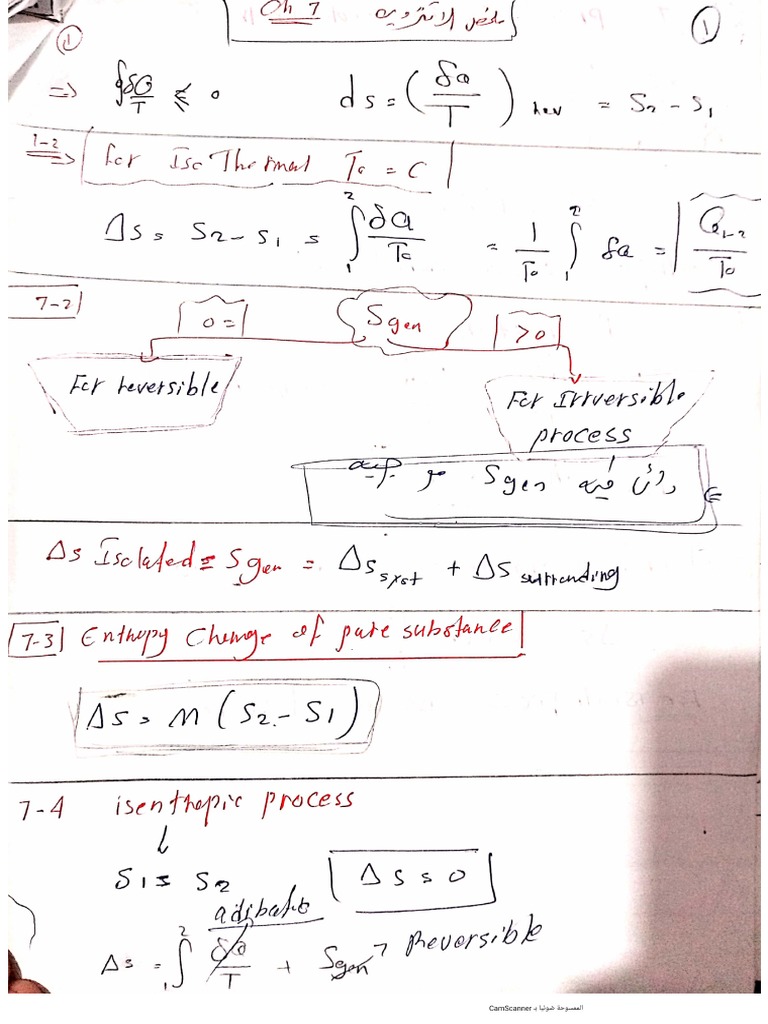 ملخص الانتروبيه Ch 7
1
1
=> ∮ δQ/T ≤ 0 ds = (δQ/T) Rev = S2 - S1
1-2 => For IsoThermal To = C
Δs = S2 - S1 = ∫₁² δQ/To = 1/To ∫₁² δQ = Q1-2/To
7-2
0 = Sgen > 0
For reversible
For Irrversible
process
Sgen
Δs Isolated = Sgen = Δs syst + Δs surrending
7-3 Entropy Change of pure substance
Δs = m (S2 - S1)
7-4 isentropic process
S1 = S2 Δs = 0
adibatic
Δs = ∫₁² δQ/T + Sgen Reversible
الممسوحة ضوئيا بـ CamScanner